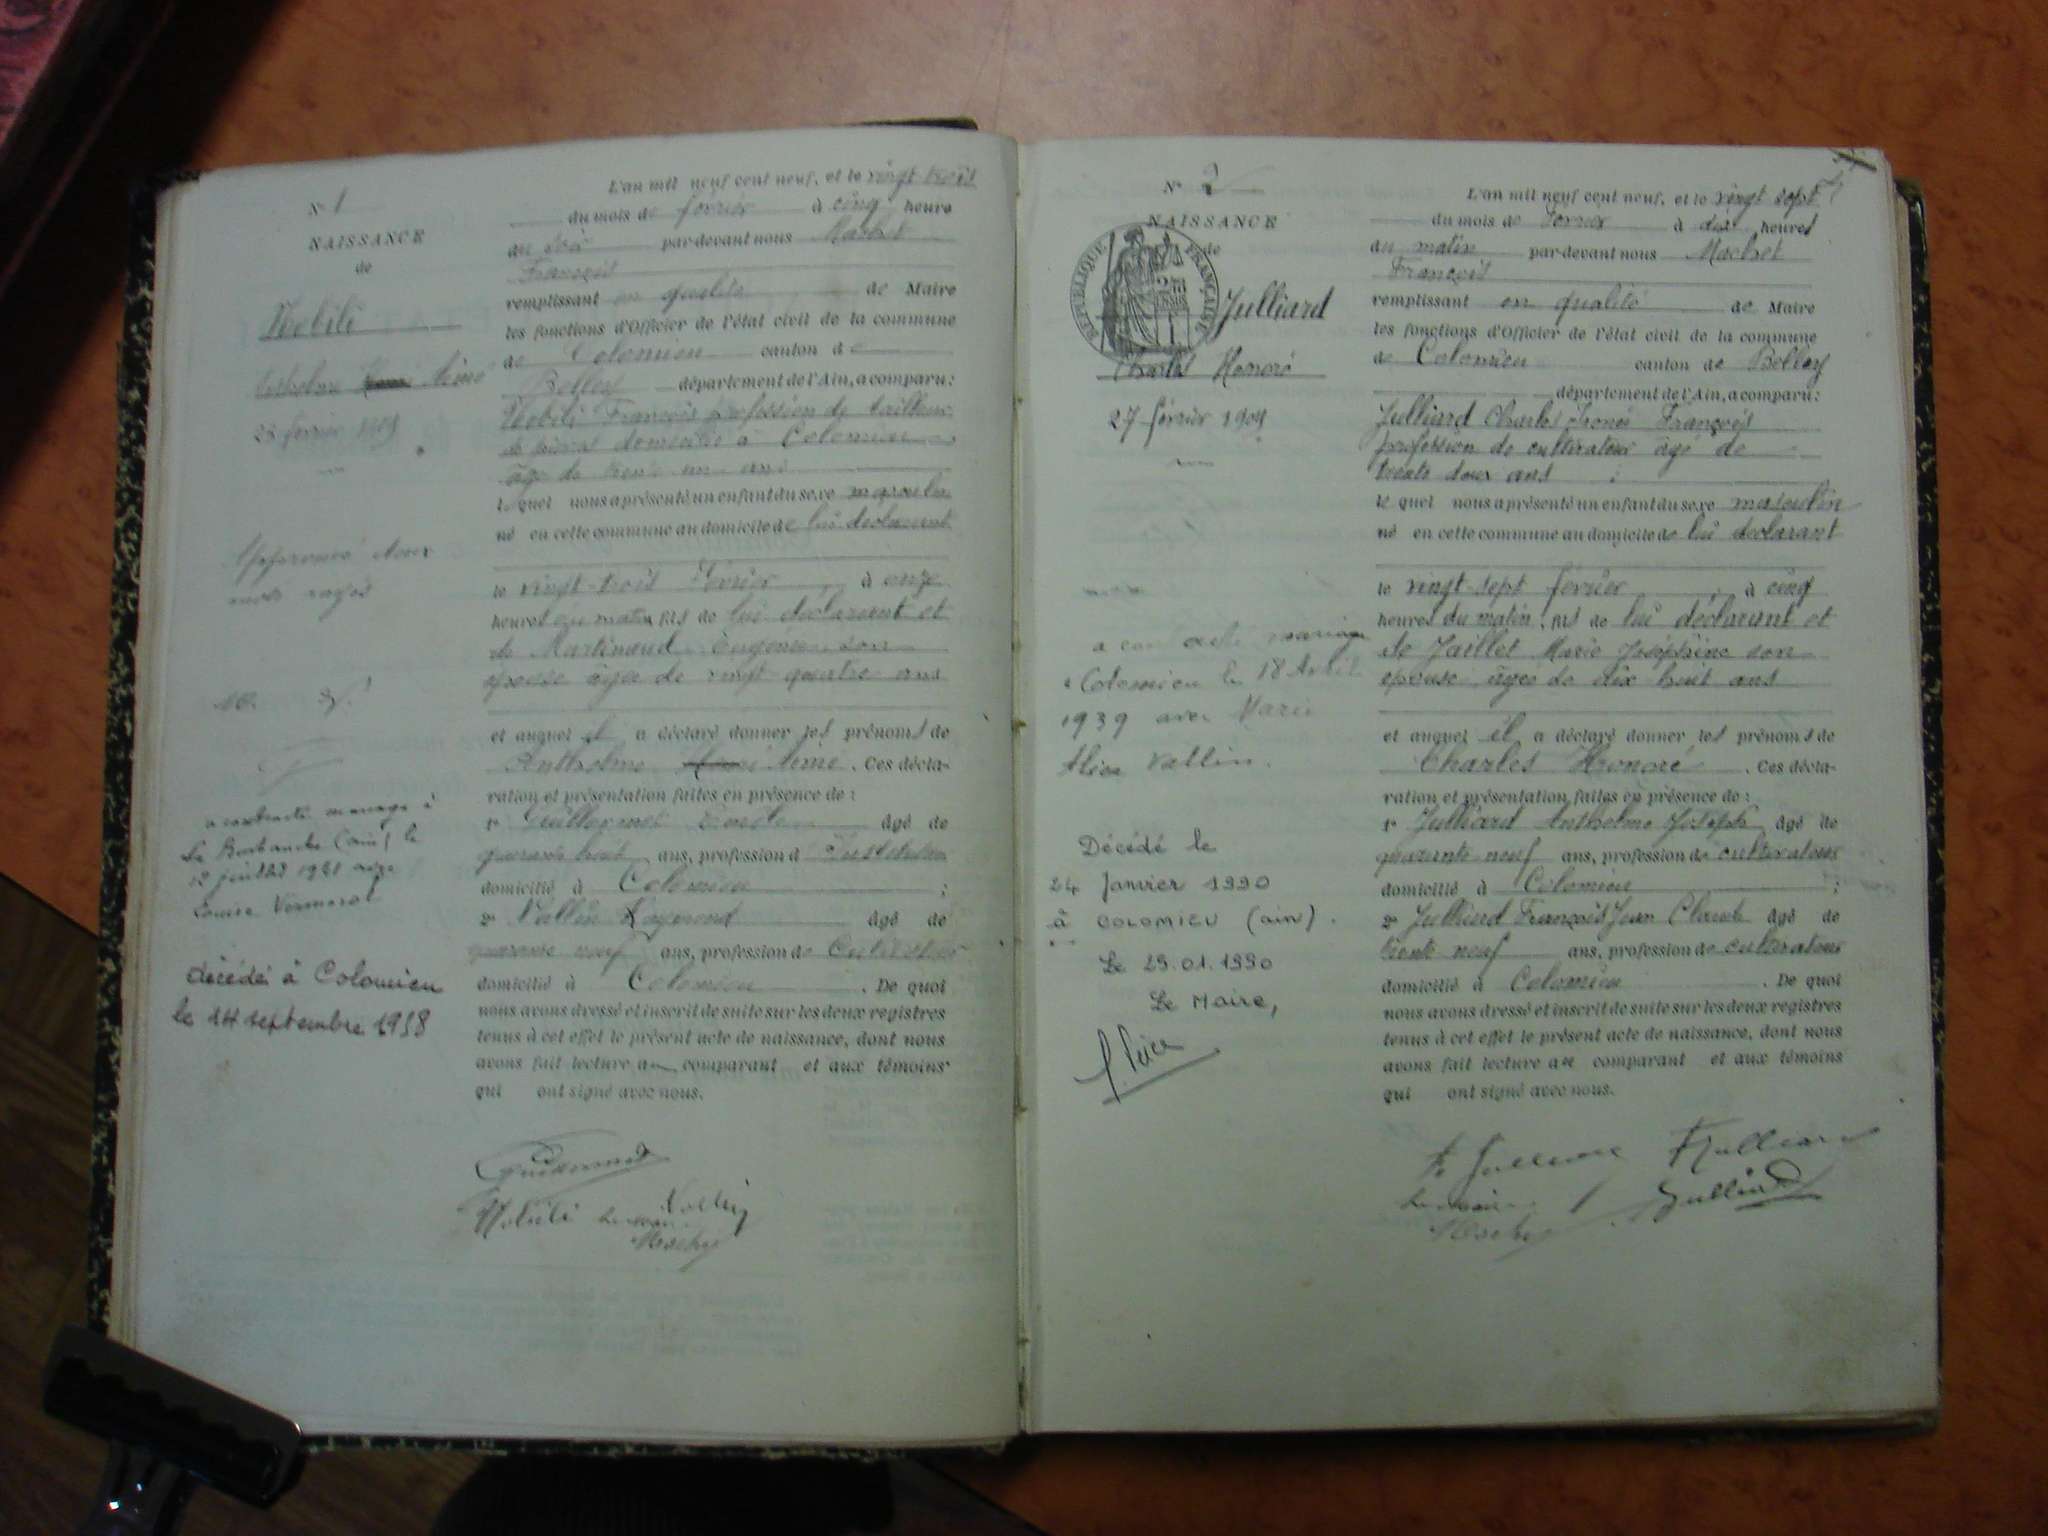 N° 1
NAISSANCE
de
Nobili
Anthelme Aimé
23 février 1909
Approuvé deux
mots rayés
a contracté mariage à
(ain) le
12 juillet 1931 avec
Louise
décédé à Colomieu
le 14 septembre 1958
L'an mil neuf cent neuf, et le vingt trois
du mois de fevrier à cinq heure
du soir par-devant nous Machet
François
remplissant en qualité de Maire
les fonctions d'Officier de l'état civil de la commune
de Colomieu canton de
Belley département de l'Ain, a comparu :
Nobili François profession de tailleur
de pierres domicilié à Colomieu
âgé de trente un ans
le quel nous a présenté un enfant du sexe masculin
né en cette commune au domicile de lui déclarant
le vingt-trois Février, à onze
heures du matin, fils de lui déclarant et
de Martinaud Eugénie son
épouse âgée de vingt quatre ans
et auquel il a déclaré donner les prénoms de
Anthelme Aimé. Ces décla-
ration et présentation faites en présence de :
1° âgé de
quarante huit ans, profession d'
domicilié à Colomieu ;
2° Vallin Raymond âgé de
quarante neuf ans, profession de Cultivateur
domicilié à Colomieu. De quoi
nous avons dressé et inscrit de suite sur les deux registres
tenus à cet effet le présent acte de naissance, dont nous
avons fait lecture au comparant et aux témoins
qui ont signé avec nous.
Nobili Le maire Vallin
Machet
N° 2
NAISSANCE
de
RÉPUBLIQUE FRANÇAISE
Julliard
Charles Honoré
27 février 1909
a contracté mariage
à Colomieu le 18 Avril
1939 avec Marie
Vallin.
Décédé le
24 Janvier 1990
à COLOMIEU (ain).
Le 29.01.1990
Le Maire,
L'an mil neuf cent neuf, et le vingt sept
du mois de Fevrier à dix heures
du matin par-devant nous Machet
François
remplissant en qualité de Maire
les fonctions d'Officier de l'état civil de la commune
de Colomieu canton de Belley
département de l'Ain, a comparu :
Julliard Charles François
profession de cultivateur âgé de
trente deux ans
le quel nous a présenté un enfant du sexe masculin
né en cette commune au domicile de lui déclarant
le vingt-sept fevrier, à cinq
heures du matin, fils de lui déclarant et
de Jaillet Marie Joséphine son
épouse, âgée de dix huit ans
et auquel il a déclaré donner les prénoms de
Charles Honoré. Ces décla-
ration et présentation faites en présence de :
1° Julliard Anthelme Joseph âgé de
quarante neuf ans, profession de cultivateur
domicilié à Colomieu ;
2° Julliard François Jean Claude âgé de
trente neuf ans, profession de cultivateur
domicilié à Colomieu. De quoi
nous avons dressé et inscrit de suite sur les deux registres
tenus à cet effet le présent acte de naissance, dont nous
avons fait lecture au comparant et aux témoins
qui ont signé avec nous.
Julliard
Le maire Julliard
Machet